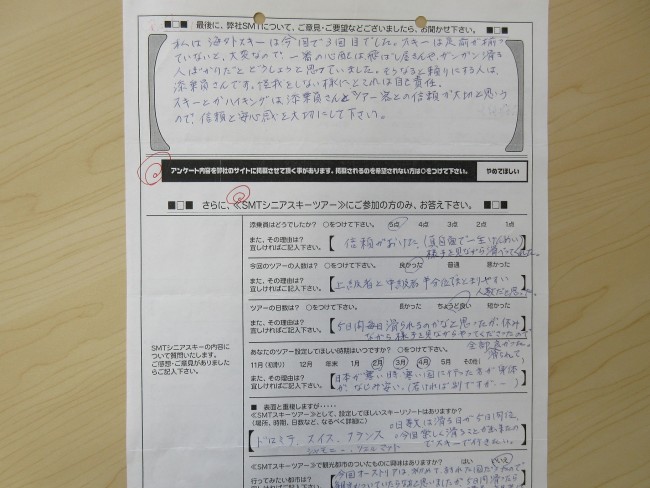 ■□■ 最後に、弊社SMTについて、ご意見・ご要望などございましたら、お聞かせ下さい。 ■□■
私は海外スキーは今回で3回目でした。スキーは足前が揃っ
ていないと、大変なので、一番の心配は、飛ばし屋さんや、ガンガン滑る
人ばかりだとどうしようと思っていました。そうなると頼りにする人は、
添乗員さんです。怪我をしない様にとこれは自己責任。
スキーとかハイキングは添乗員さんとツアー客との信頼が大切と思う
ので、信頼と安心感を大切にして下さい。
アンケート内容を弊社のサイトに掲載させて頂く事があります。掲載されるのを希望されない方は○をつけて下さい。 やめてほしい
■□■ さらに、≪SMTシニアスキーツアー≫にご参加の方のみ、お答え下さい。 ■□■
SMTシニアスキーの内容に
ついて質問いたします。
ご感想・ご意見がありました
らご記入下さい。
添乗員はどうでしたか? ○をつけて下さい。 5点 4点 3点 2点 1点
また、その理由は?
宜しければご記入下さい。
信頼がおけた。(真面目で一生けんめい
様子を見ながら滑って
今回のツアーの人数は? ○をつけて下さい。 良かった 普通 悪かった
また、その理由は?
宜しければご記入下さい。
上級者と中級者半分位でまとまりやすい
人数だと思った。
ツアーの日数は? ○をつけて下さい。 長かった ちょうど良い 短かった
また、その理由は?
宜しければご記入下さい。
5日間毎日滑られるのかなと思ったが、休み
ながら様子を見ながらやってくださったので
全部
滑れて)
あなたのツアー設定してほしい時期はいつですか? ○をつけて下さい。
11月(初滑り) 12月 年末 1月 2月 3月 4月 5月 その他(
また、その理由は?
宜しければご記入下さい。
日本が寒い時寒い国に行った方が身体
が、なじみ安い。(若ければ別ですが、ー)
■ 表面と重複しますが・・・・・
≪SMTスキーツアー≫として、設定してほしいスキーリゾートはありますか?
(場所、時期、日数など、なるべく詳細に)
日数は滑る日が5日間位、
ドロミテ、スイス、フランス
今回楽しく滑ることが出来たの
シャモニー、ツェルマット
でスキーで行きたい。
≪SMTスキーツアー≫で観光都市のついたものに興味はありますか? はい いいえ
また、その理由は?
行ってみたい都市は?
今回オーストリアは